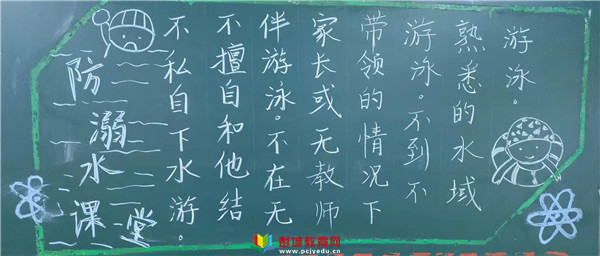 防溺水课堂
不私自下水游。
不擅自和他结
伴游泳。不在无
家长或无教师
带领的情况下
游泳。不到不
熟悉的水域
游泳。
教育网
www.pcjyedu.cn